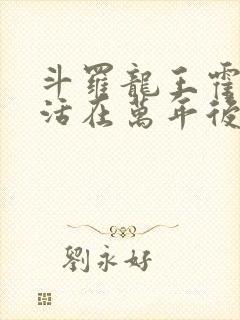 斗羅龍王霍
活在萬年後
劉永好